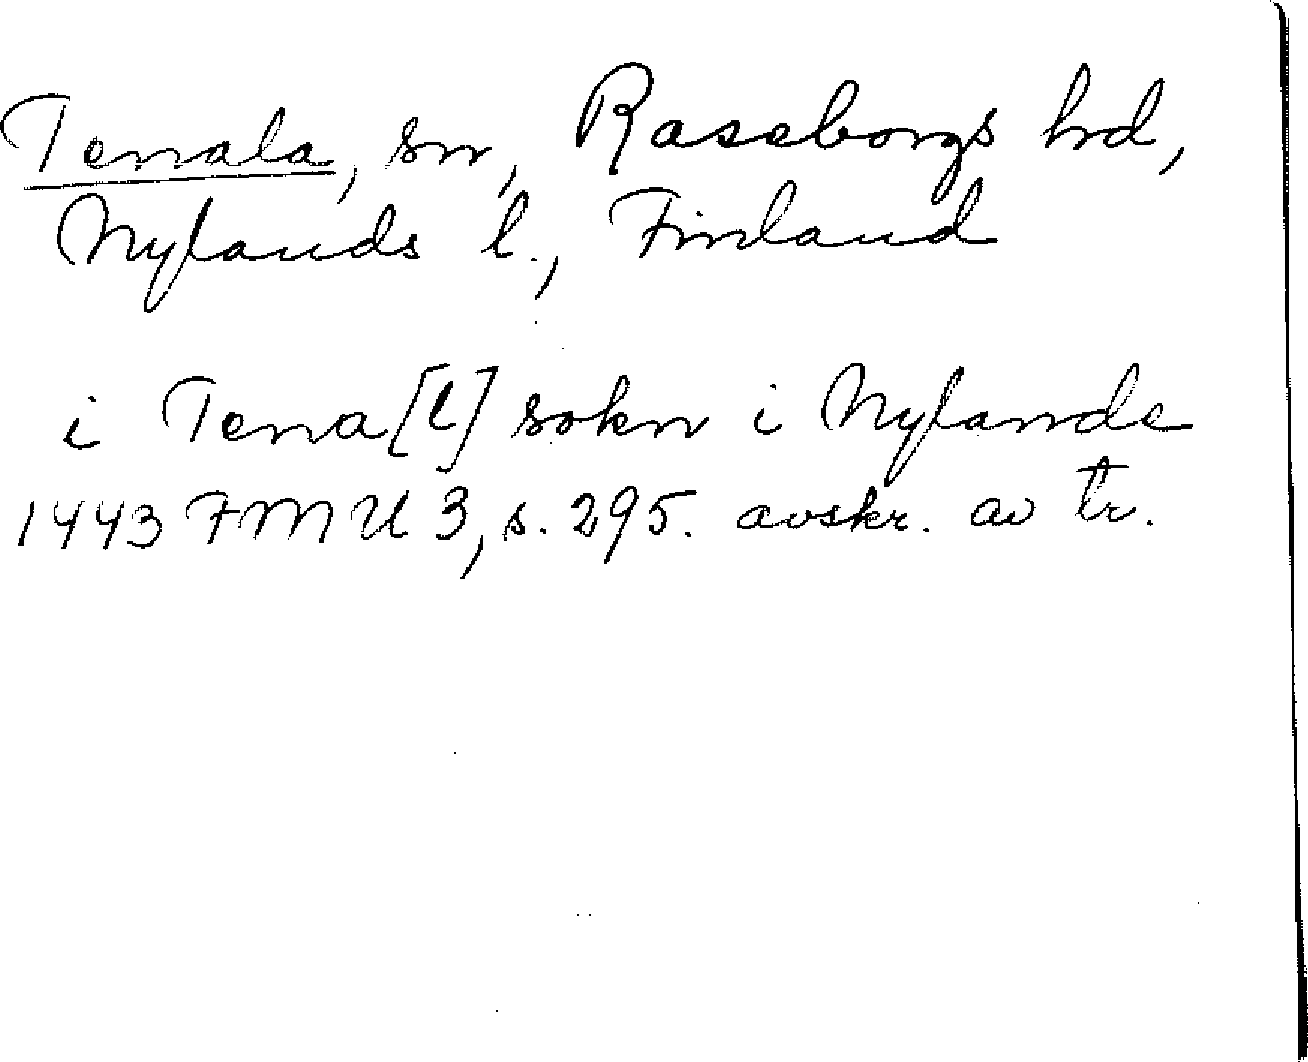 Tenala, sn, Raseborgs hd,
Nylands l., Finland
i Tena[l] sokn i Nylande
1443 FMU 3, s. 295. avskr. av tr.